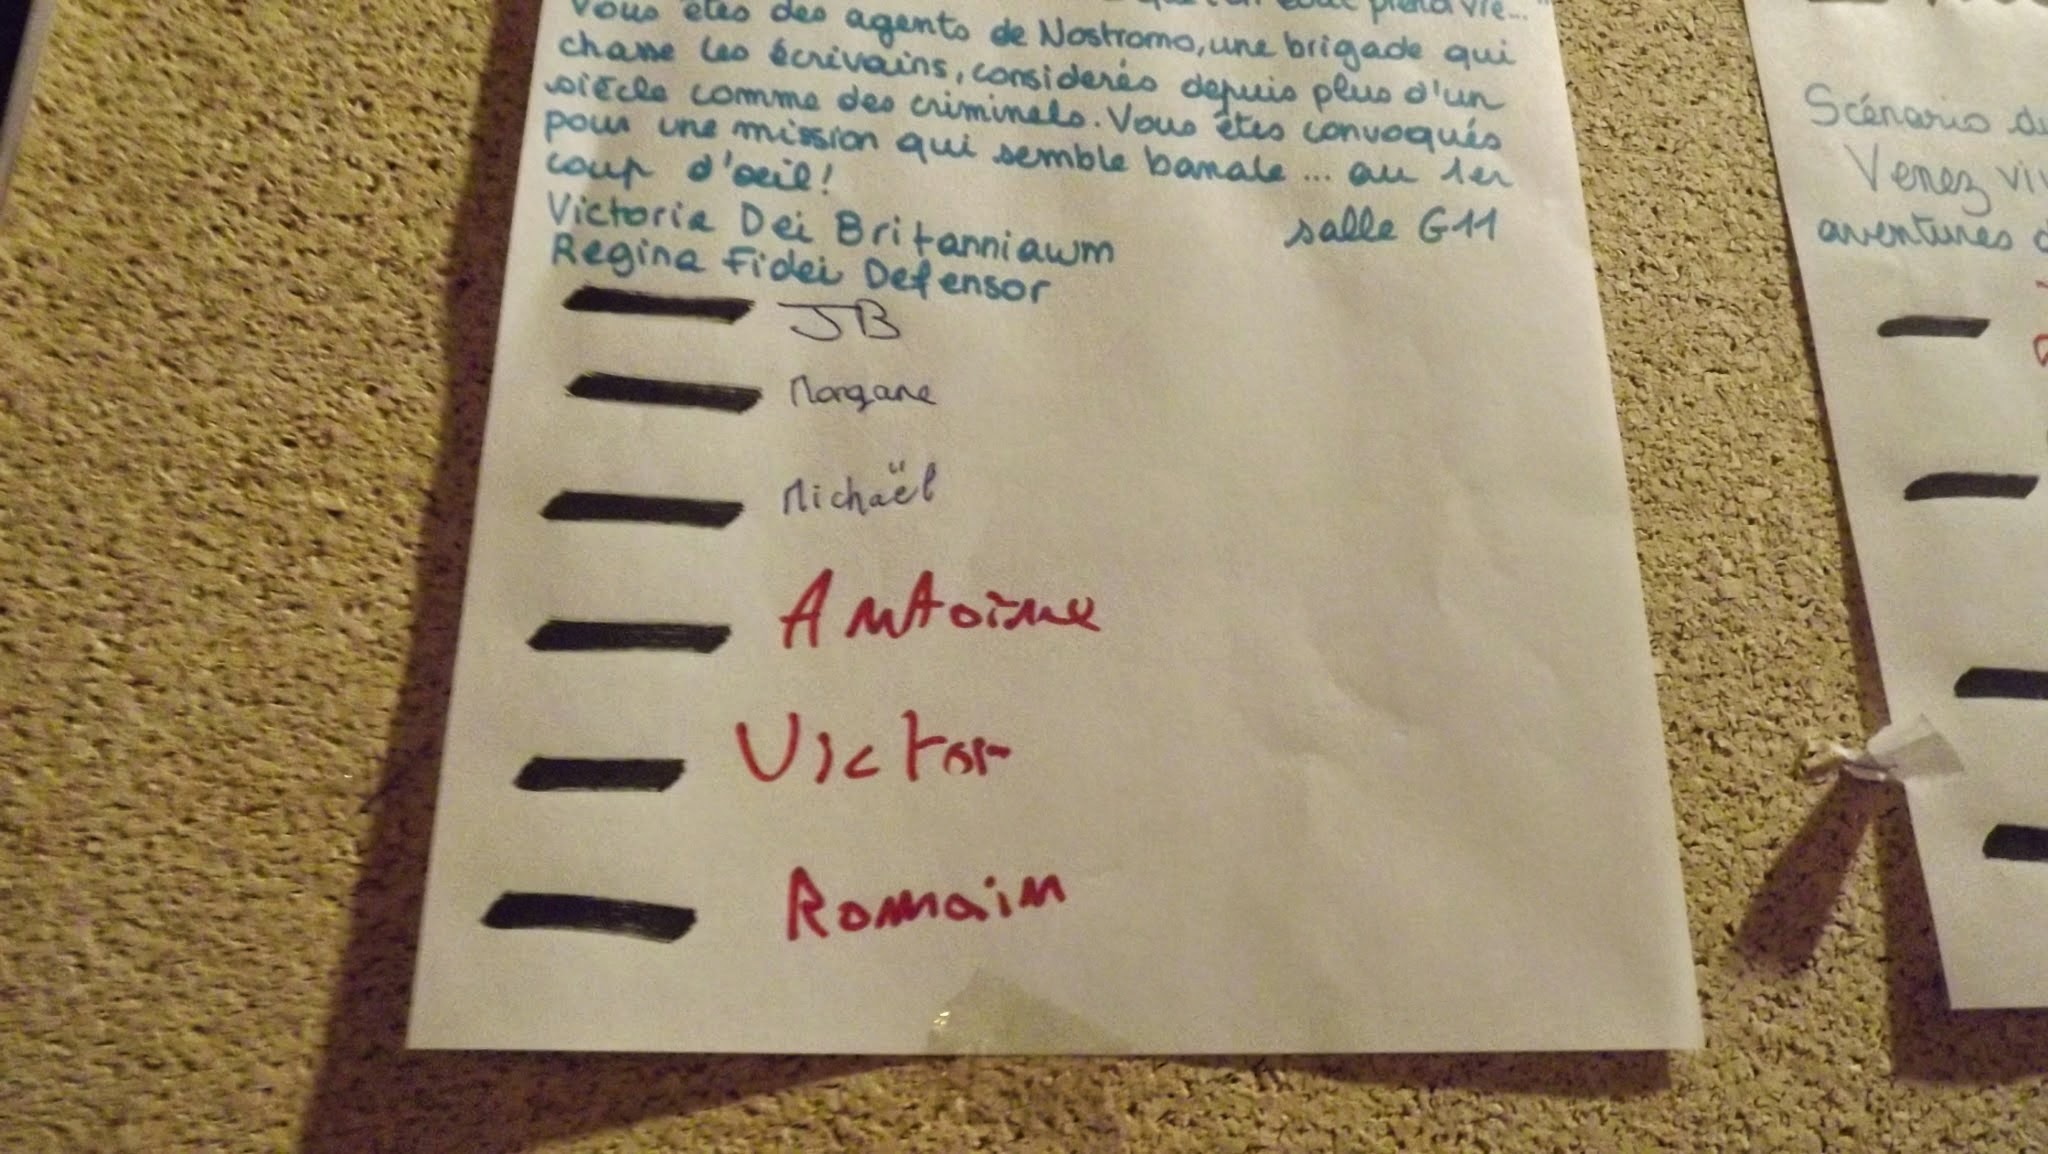 prend vie..."
Vous êtes des agents de Nostromo, une brigade qui
chasse les écrivains, considerés depuis plus d'un
siècle comme des criminels. Vous êtes convoqués
pour une mission qui semble banale... au 1er
coup d'oeil!
Victoria Dei Britanniawm
salle G11
Regina Fidei Defensor
JB
Morgane
Michaël
Antoine
Victor
Romain
Scénario du
Venez viv
aventures d